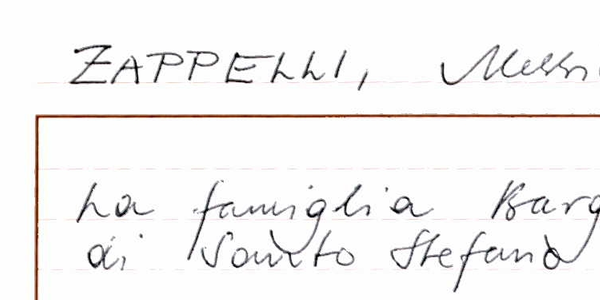 ZAPPELLI,
La famiglia
di Santo Stefano